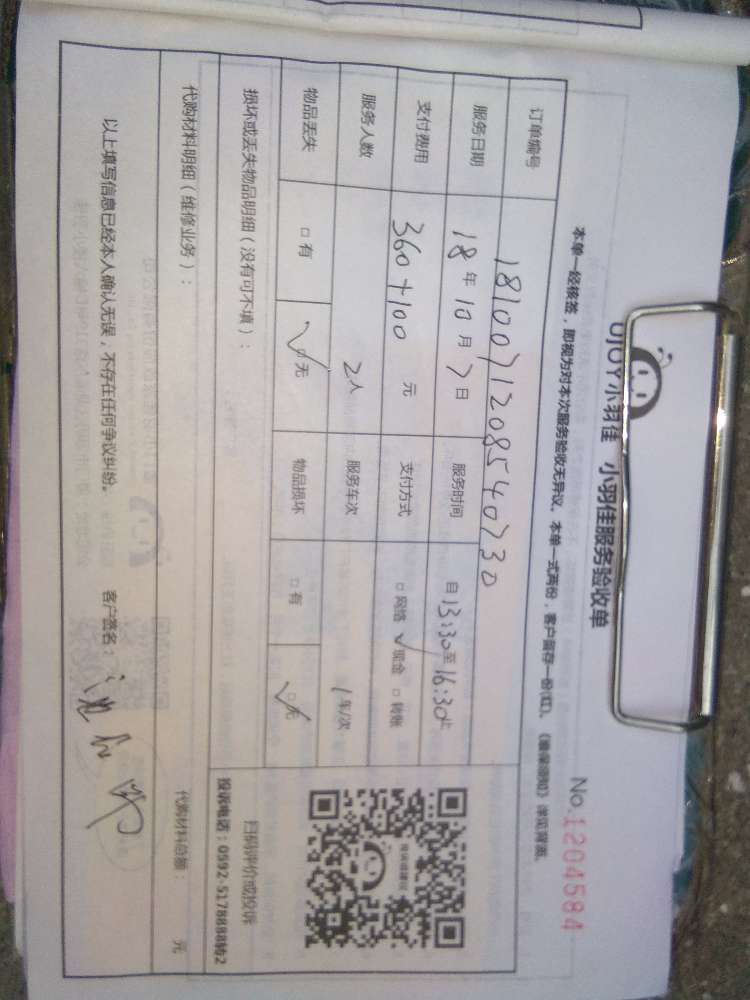 UJOY小羽佳 小羽佳服务验收单
No.1204584
本单一经核签，即视为对本次服务验收无异议。本单一式两份，客户留存一份(红)。
订单编号 1810071208540730
服务日期 18年10月7日 服务时间 自13:30至16:30止
支付费用 360+100 元 支付方式 □网络 ✓现金 □转账
服务人数 2人 服务车次 1车/次
物品丢失 □有 ☑无 物品损坏 □有 ☑无
损坏或丢失物品明细（没有可不填）：
扫码评价或投诉
投诉电话：0592-5178888转2
代购材料明细（维修业务）：
代购材料总额： 元
以上填写信息已经本人确认无误，不存在任何争议纠纷。 客户签名：